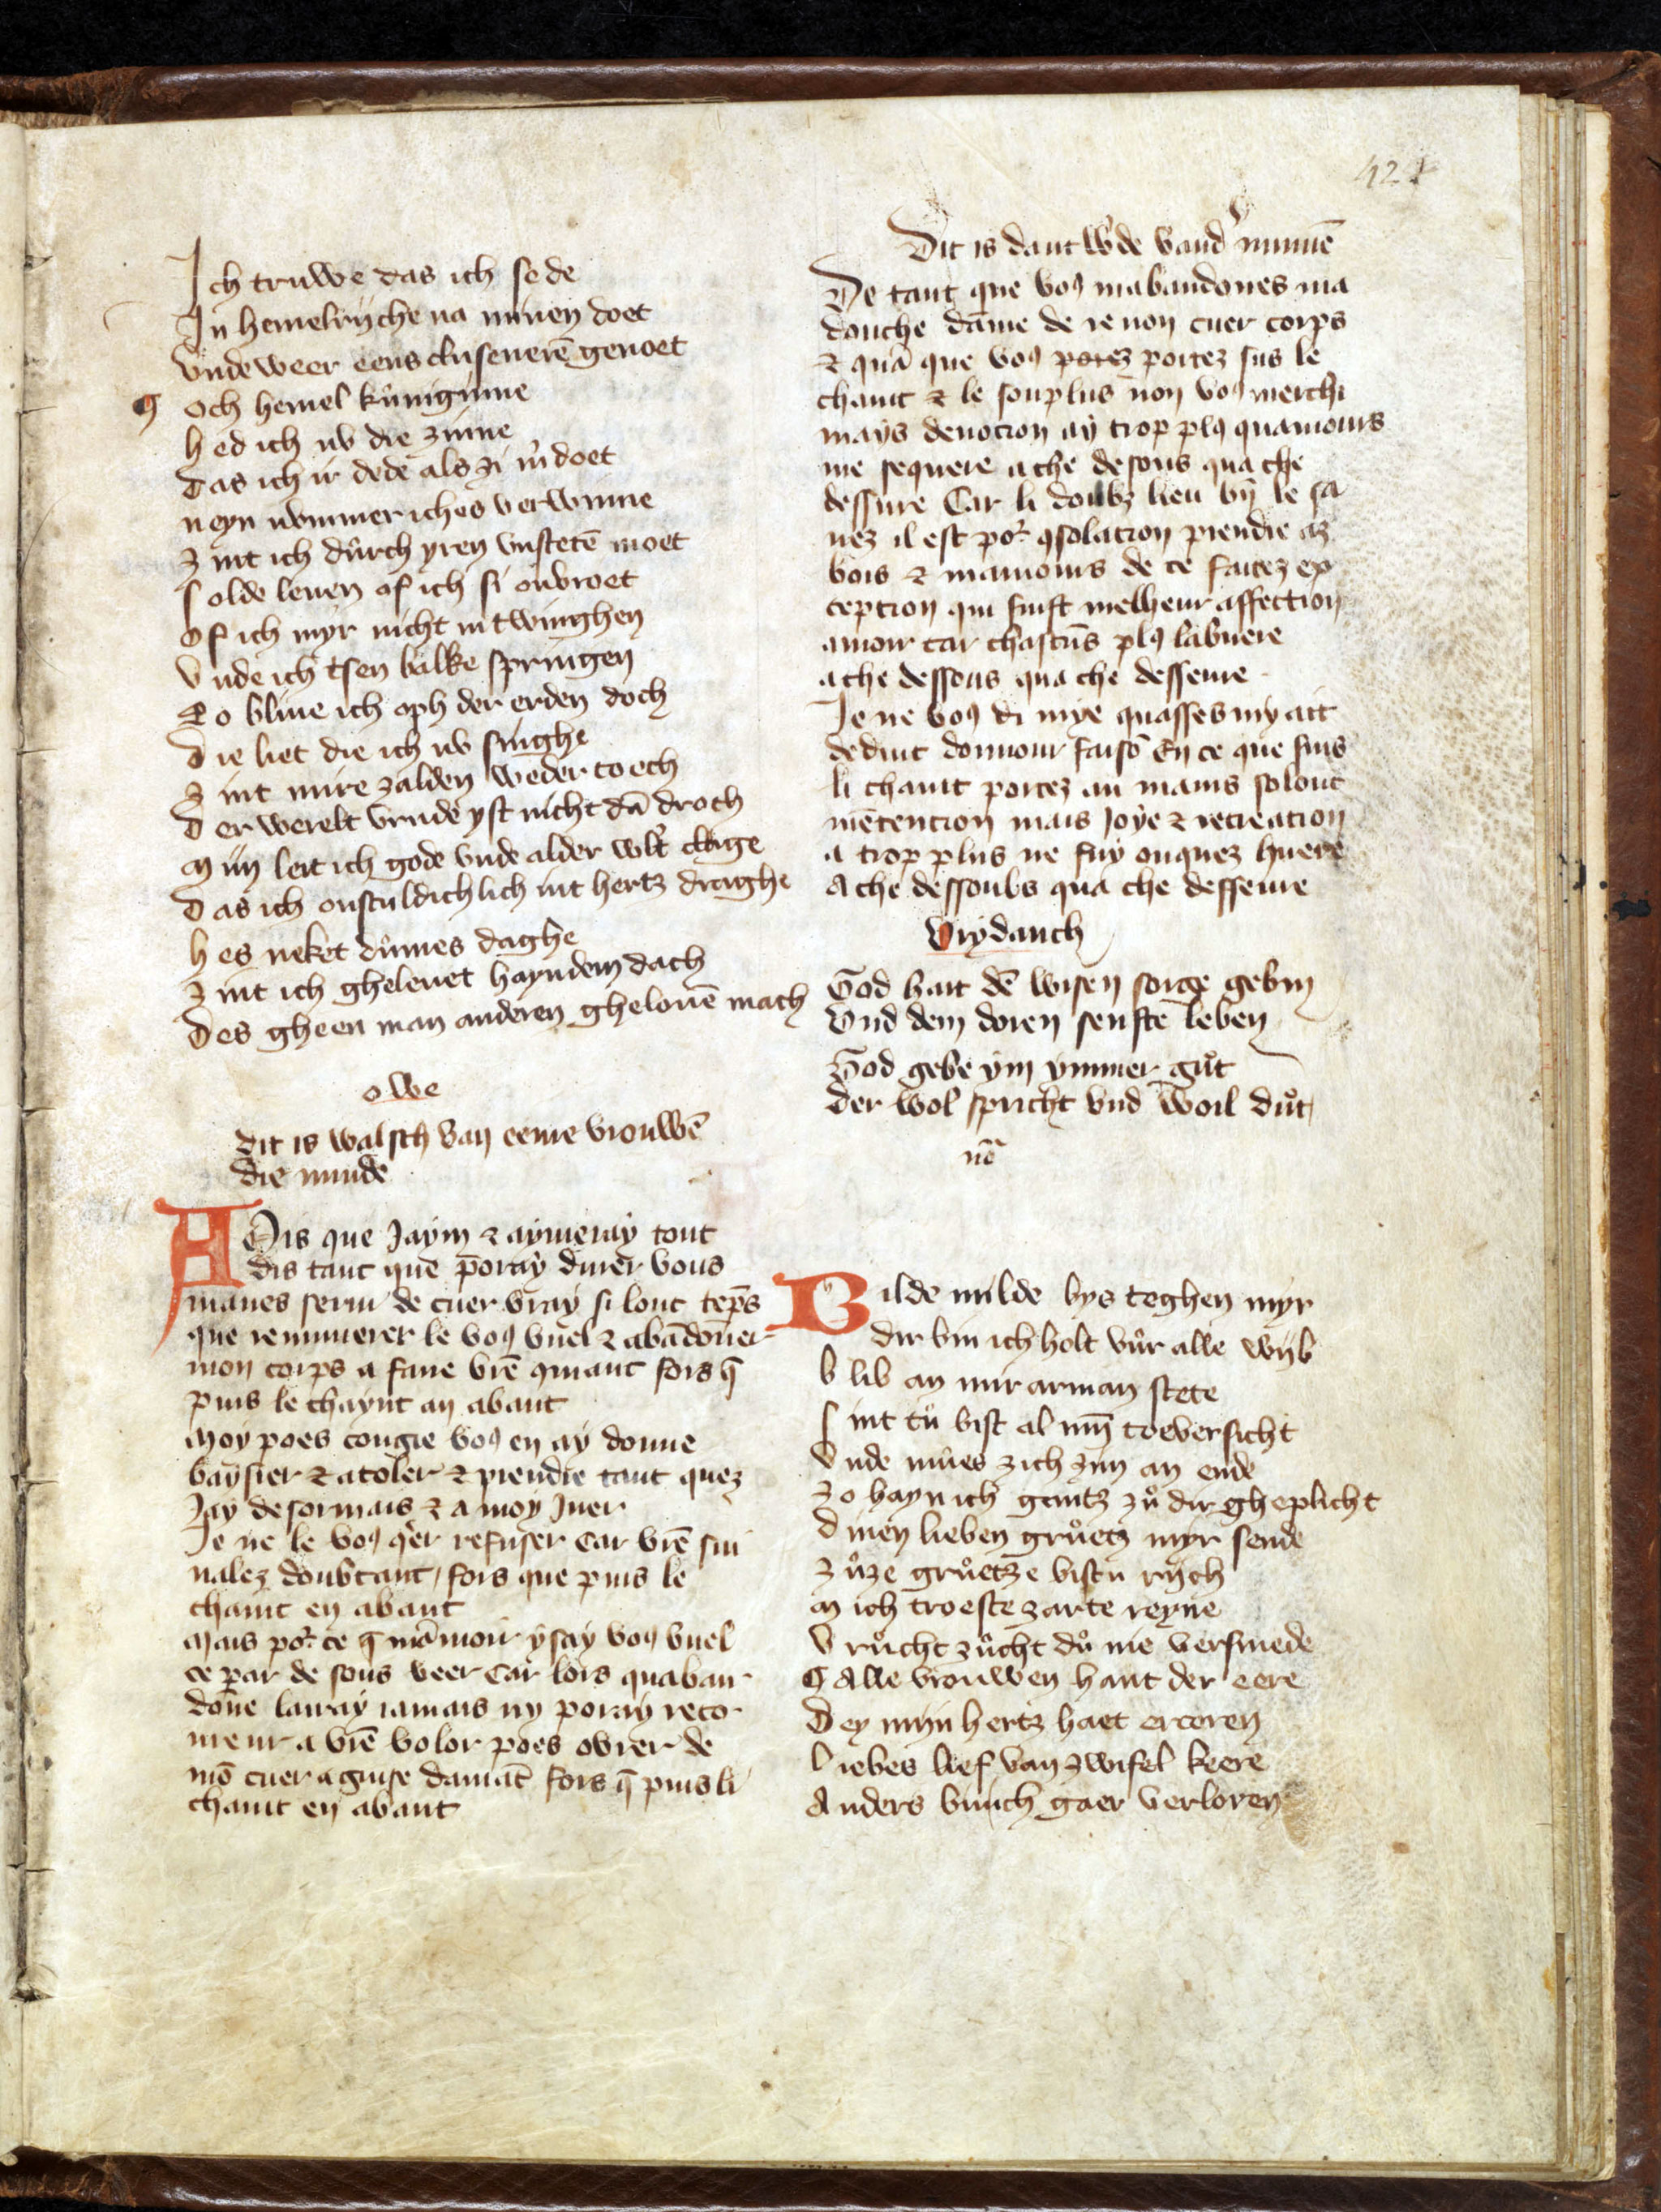 42
Ich truwe das ich sede
In hemelrijche na minen doet
Vnde weer eens clusenerē genoet
Och hemel kůniginne
Hed ich uw die zinne
Das ich ir dede als zi mᷣ doet
Neyn nvmmer iches verwinne
Zint ich důrch yren vnstetē moet
Solde leuen of ich si onvroet
Of ich myr nicht intwinghen
Vnde ich tsen balke springen
So bliue ich oph der erden doch
Die liet die ich uw singhe
Zint mire zalden weder toech
Der werelt vrude yst nicht dā droch
Mijn leit ich gode vnde alder wlt clage
Das ich onsculdichlich int hertz draghe
Hes neket důmes daghe
Zint ich gheleuet hayn dem dach
Des gheen man anderen ghelouē mach
owe
Dit is walsch van eenre vrouwē
die minde
ADis que Jaym & aymeray tout
dis tant que poray durer vous
maues serui de cuer vray si lonc tēps
que remunerer le voꝯ vuel & abādoner
mon corps a faire vrē ꝯmant fors q̄
puis le chaynt an abant
Moy poes congie voꝯ en ay donne
baysier & acoler & prendre tant quez
Jay desormais & a moy Juer
Je ne le voꝯ qer refuser Car vrē sui
nalez doubtant / fors que puis le
chaint en abant
Mais por ce q̄ māmour ysay voꝯ vuel
ce par de sous veer Car lors quaban
done lauray iamais ny poray reco
urenir a vrē volor poes ovrer de
mō cuer a guise damāt fors q̄ puis li
chaint en abant
Dit is dantwᷣde vandᷣ minnē
De tant que voꝯ mabandones ma
douche dame de renon cuer corps
& quā que voꝯ porez portez sus le
chaint & le souplus non voꝯ merchi
mays deuocion ay trop plꝯ quamours
me sequere a che desous qua che
dessure Car li doulz lieu vn le sa
nez il est por ꝯsolacion prendre az
bois & mamours de ce faitez ex
cepcion qui suist melheur affection
amour car chascūs plꝯ labuere
a che dessous qua che desseure
Je ne voꝯ di mye quasses my ait
deduit donnour faisō En ce que suis
li chaint portez an mains solonc
mētencion mais Joye & recreation
a trop plus ne fuy onquez huere
A che dessoubs qua che desseure
Vrydanch
God hait dē wisen sorge gebin
Vnd dem doren senfte leben
God gebe ym ymmer gůt
Der wol spricht vnd woil důt
nō
Bilde milde bys teghen myr
dir bin ich holt vůr alle wijb
Blib an mir arman stete
Sint tů bist al min toeversicht
Vnde můes zich zijn an ende
Zo hayn ich gantz zů dir gheplicht
Dinen lieben grůetz myr sende
Zůze grůetze bistu rijch
Mich troeste zarte reyne
Vrůcht zůcht dů nie versmede
Alle vrouwen hant der eere
Dey mijn hertz haet ercoren
Liebes lief van zwifel keere
Anders bin ich gaer verloren